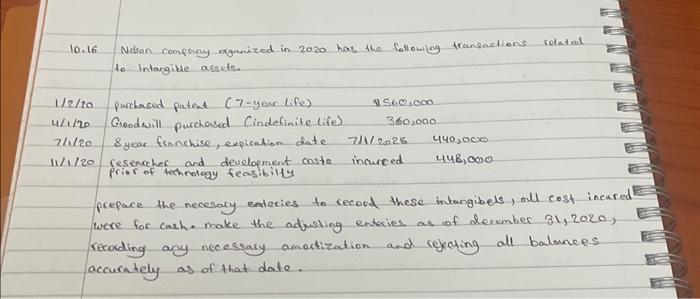 10.16 Nelson company organized in 2020 has the following transactions related
to intangible assets.
1/2/20 purchased patent (7-year life) $560,000
4/1/20 Goodwill purchased (indefinite life) 360,000
7/1/20 8 year franchise, expiration date 7/1/2028 440,000
11/1/20 researcher and development costs incurred 448,000
prior of technology feasibilty
prepare the necesary enteries to record these intangibels, all cost incured
were for cash. make the adjusting enteries as of december 31, 2020,
recording any necessary amortization and rejecting all balances
accurately as of that date.